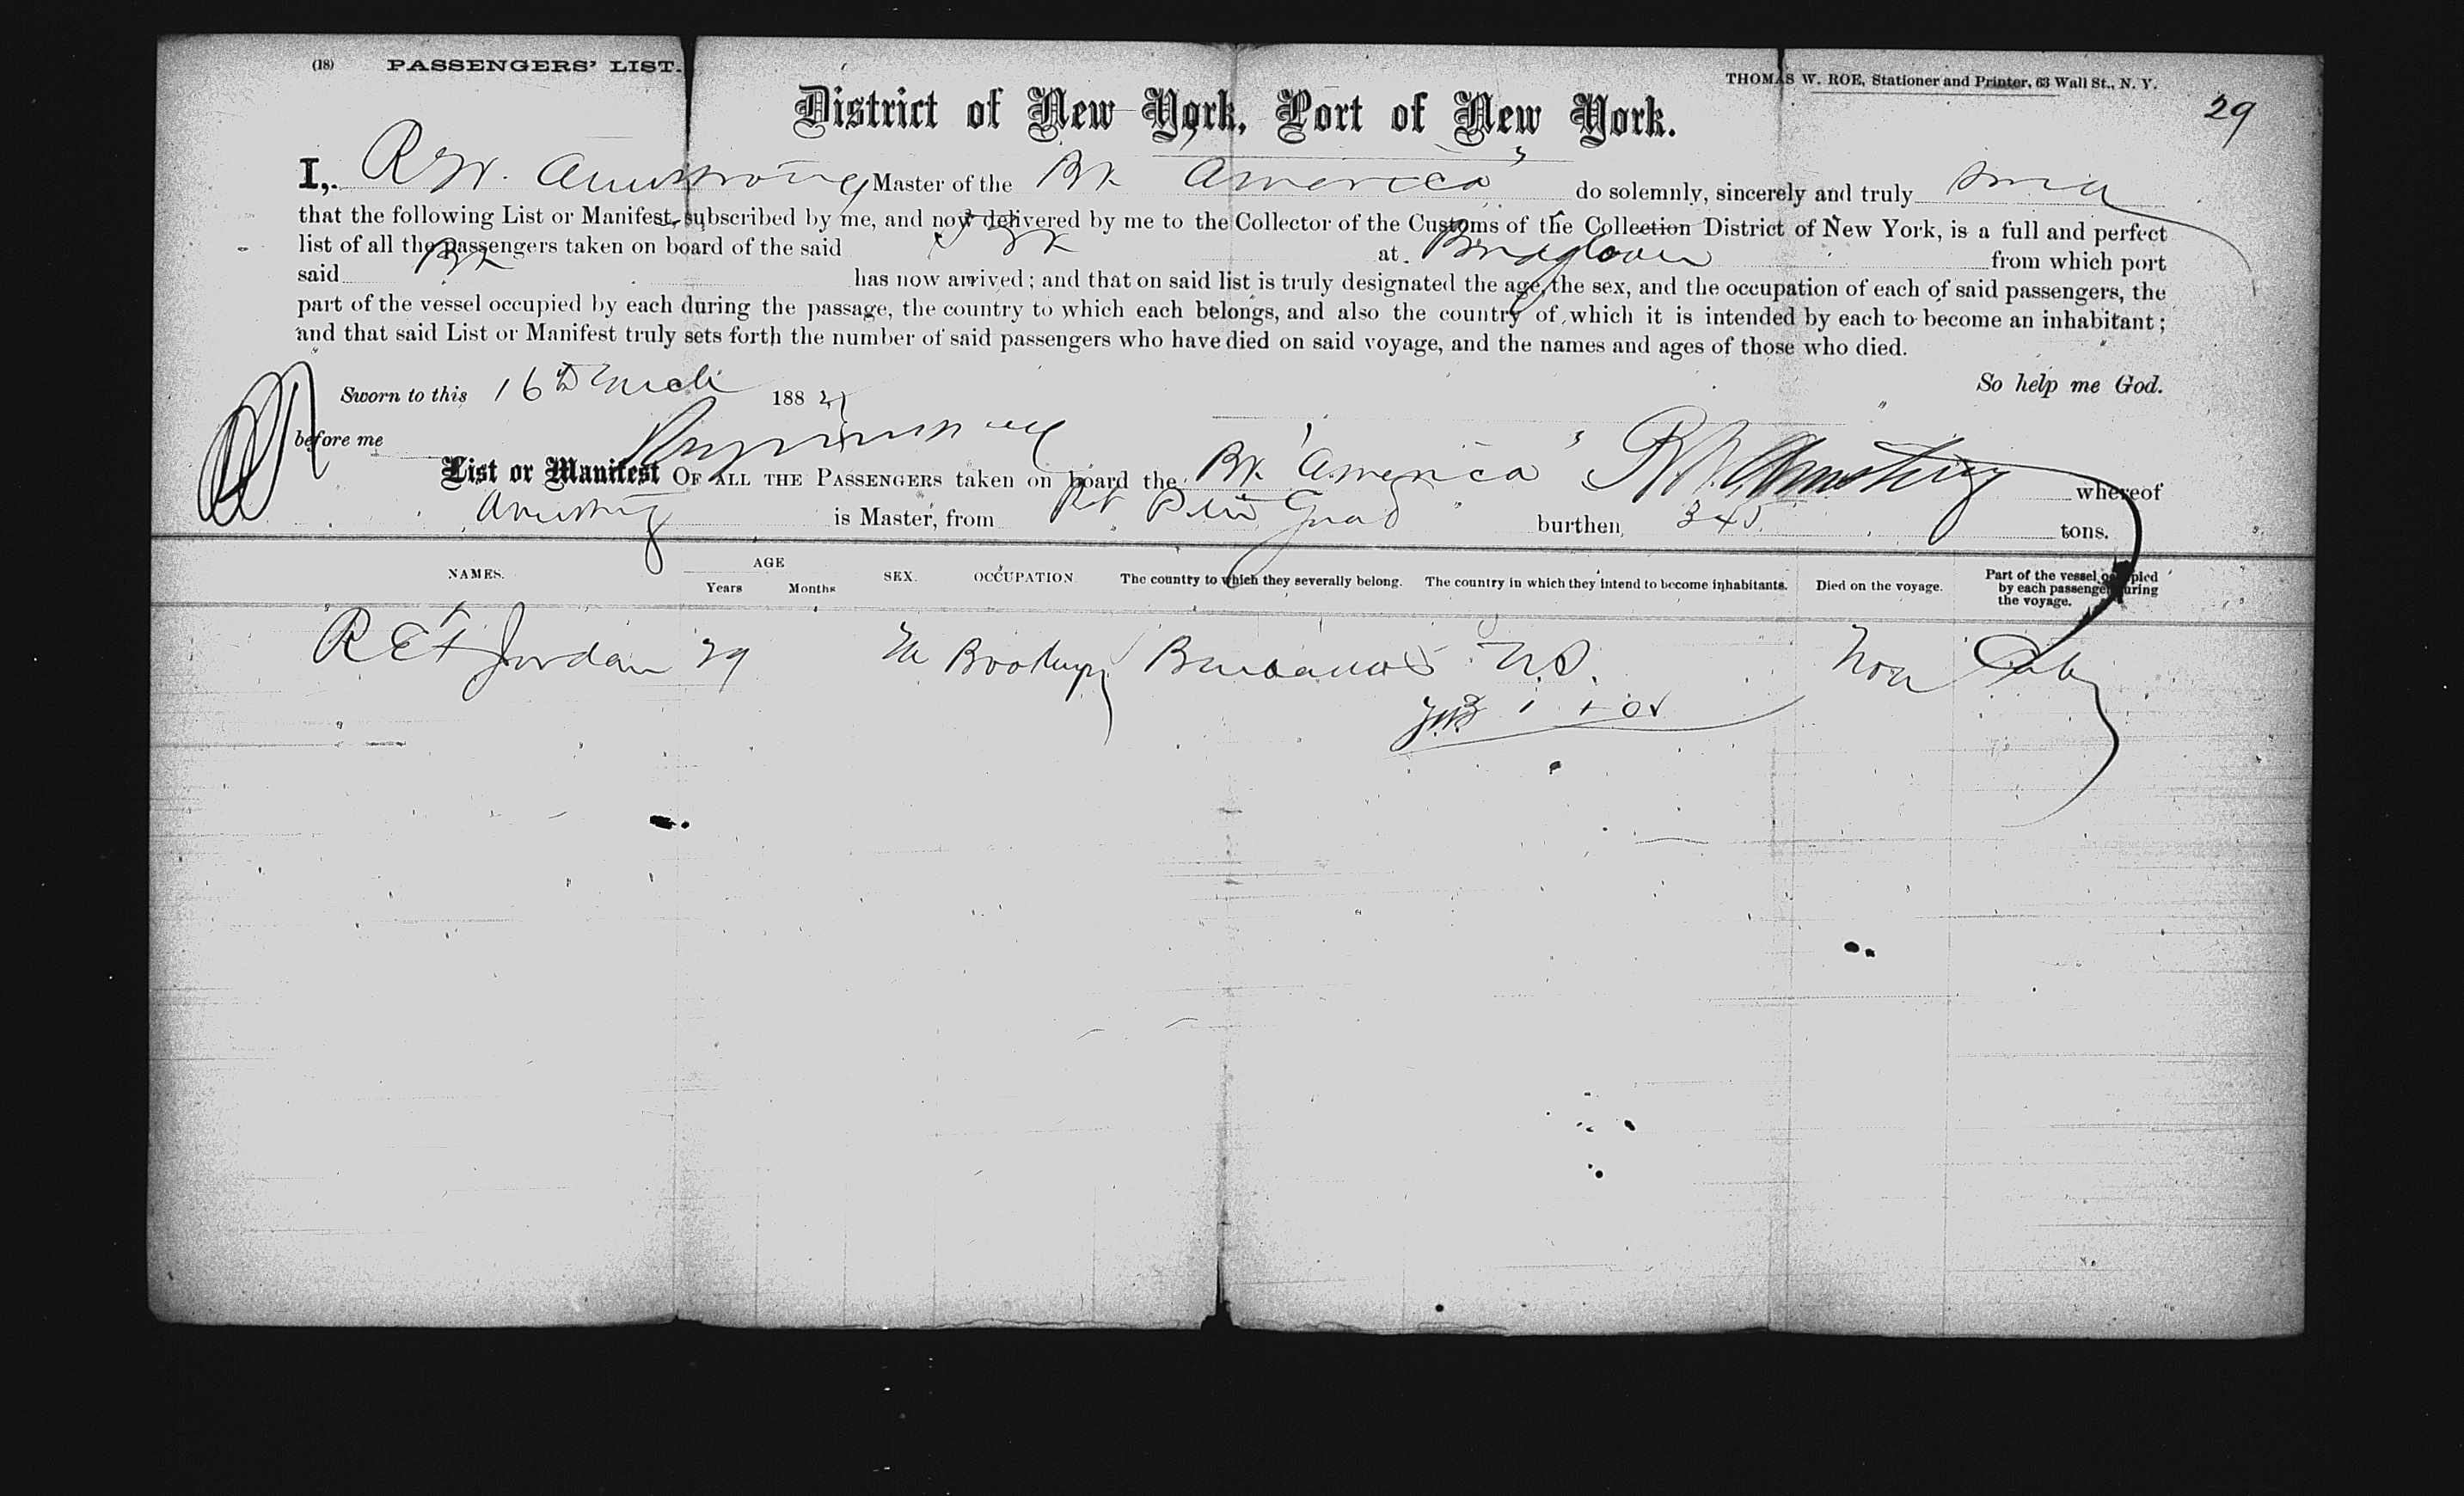 (18) PASSENGERS' LIST. THOMAS W. ROE, Stationer and Printer, 63 Wall St., N. Y.
29
District of New York, Port of New York.
I, R W. Armstrong Master of the Bk "America" do solemnly, sincerely and truly
that the following List or Manifest, subscribed by me, and now delivered by me to the Collector of the Customs of the Collection District of New York, is a full and perfect
list of all the passengers taken on board of the said Bk at from which port
said Bk has now arrived; and that on said list is truly designated the age, the sex, and the occupation of each of said passengers, the
part of the vessel occupied by each during the passage, the country to which each belongs, and also the country of which it is intended by each to become an inhabitant;
and that said List or Manifest truly sets forth the number of said passengers who have died on said voyage, and the names and ages of those who died.
So help me God.
Sworn to this 16th March 188
before me
List or Manifest OF ALL THE PASSENGERS taken on board the Bk "America" R W Armstrong whereof
Armstrong is Master, from burthen, tons.
NAMES. AGE Years Months SEX. OCCUPATION The country to which they severally belong. The country in which they intend to become inhabitants. Died on the voyage. Part of the vessel occupied by each passenger during the voyage.
Jordan 29 M Barbados U.S.